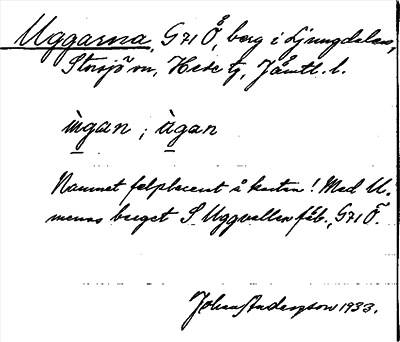 Uggarna, G71Ö, berg i Ljungdalen,
Storsjö sn, Hede tg, Jämtl. l.
ùgan ; ùgan
Namnet felplacerat å kartan! Med U.
menas berget S Uggvallen fäb., G71Ö.
Johan Anderzon 1933.